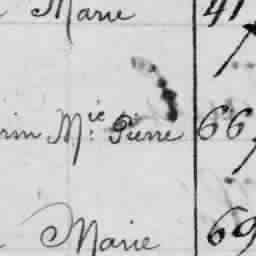 Marie 41
rin Mie: Pierre 66
Marie 69